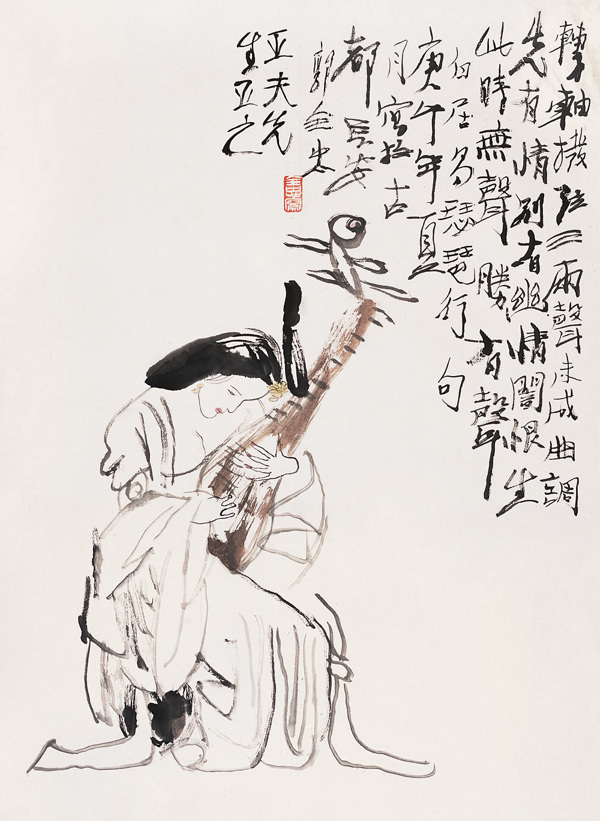 轉軸撥弦三兩聲未成曲調
先有情別有幽情闇恨生
此時無聲勝有聲
白居易琵琶行句
庚午年夏
月寫於古
都長安
郭全忠
亚夫先
生正之